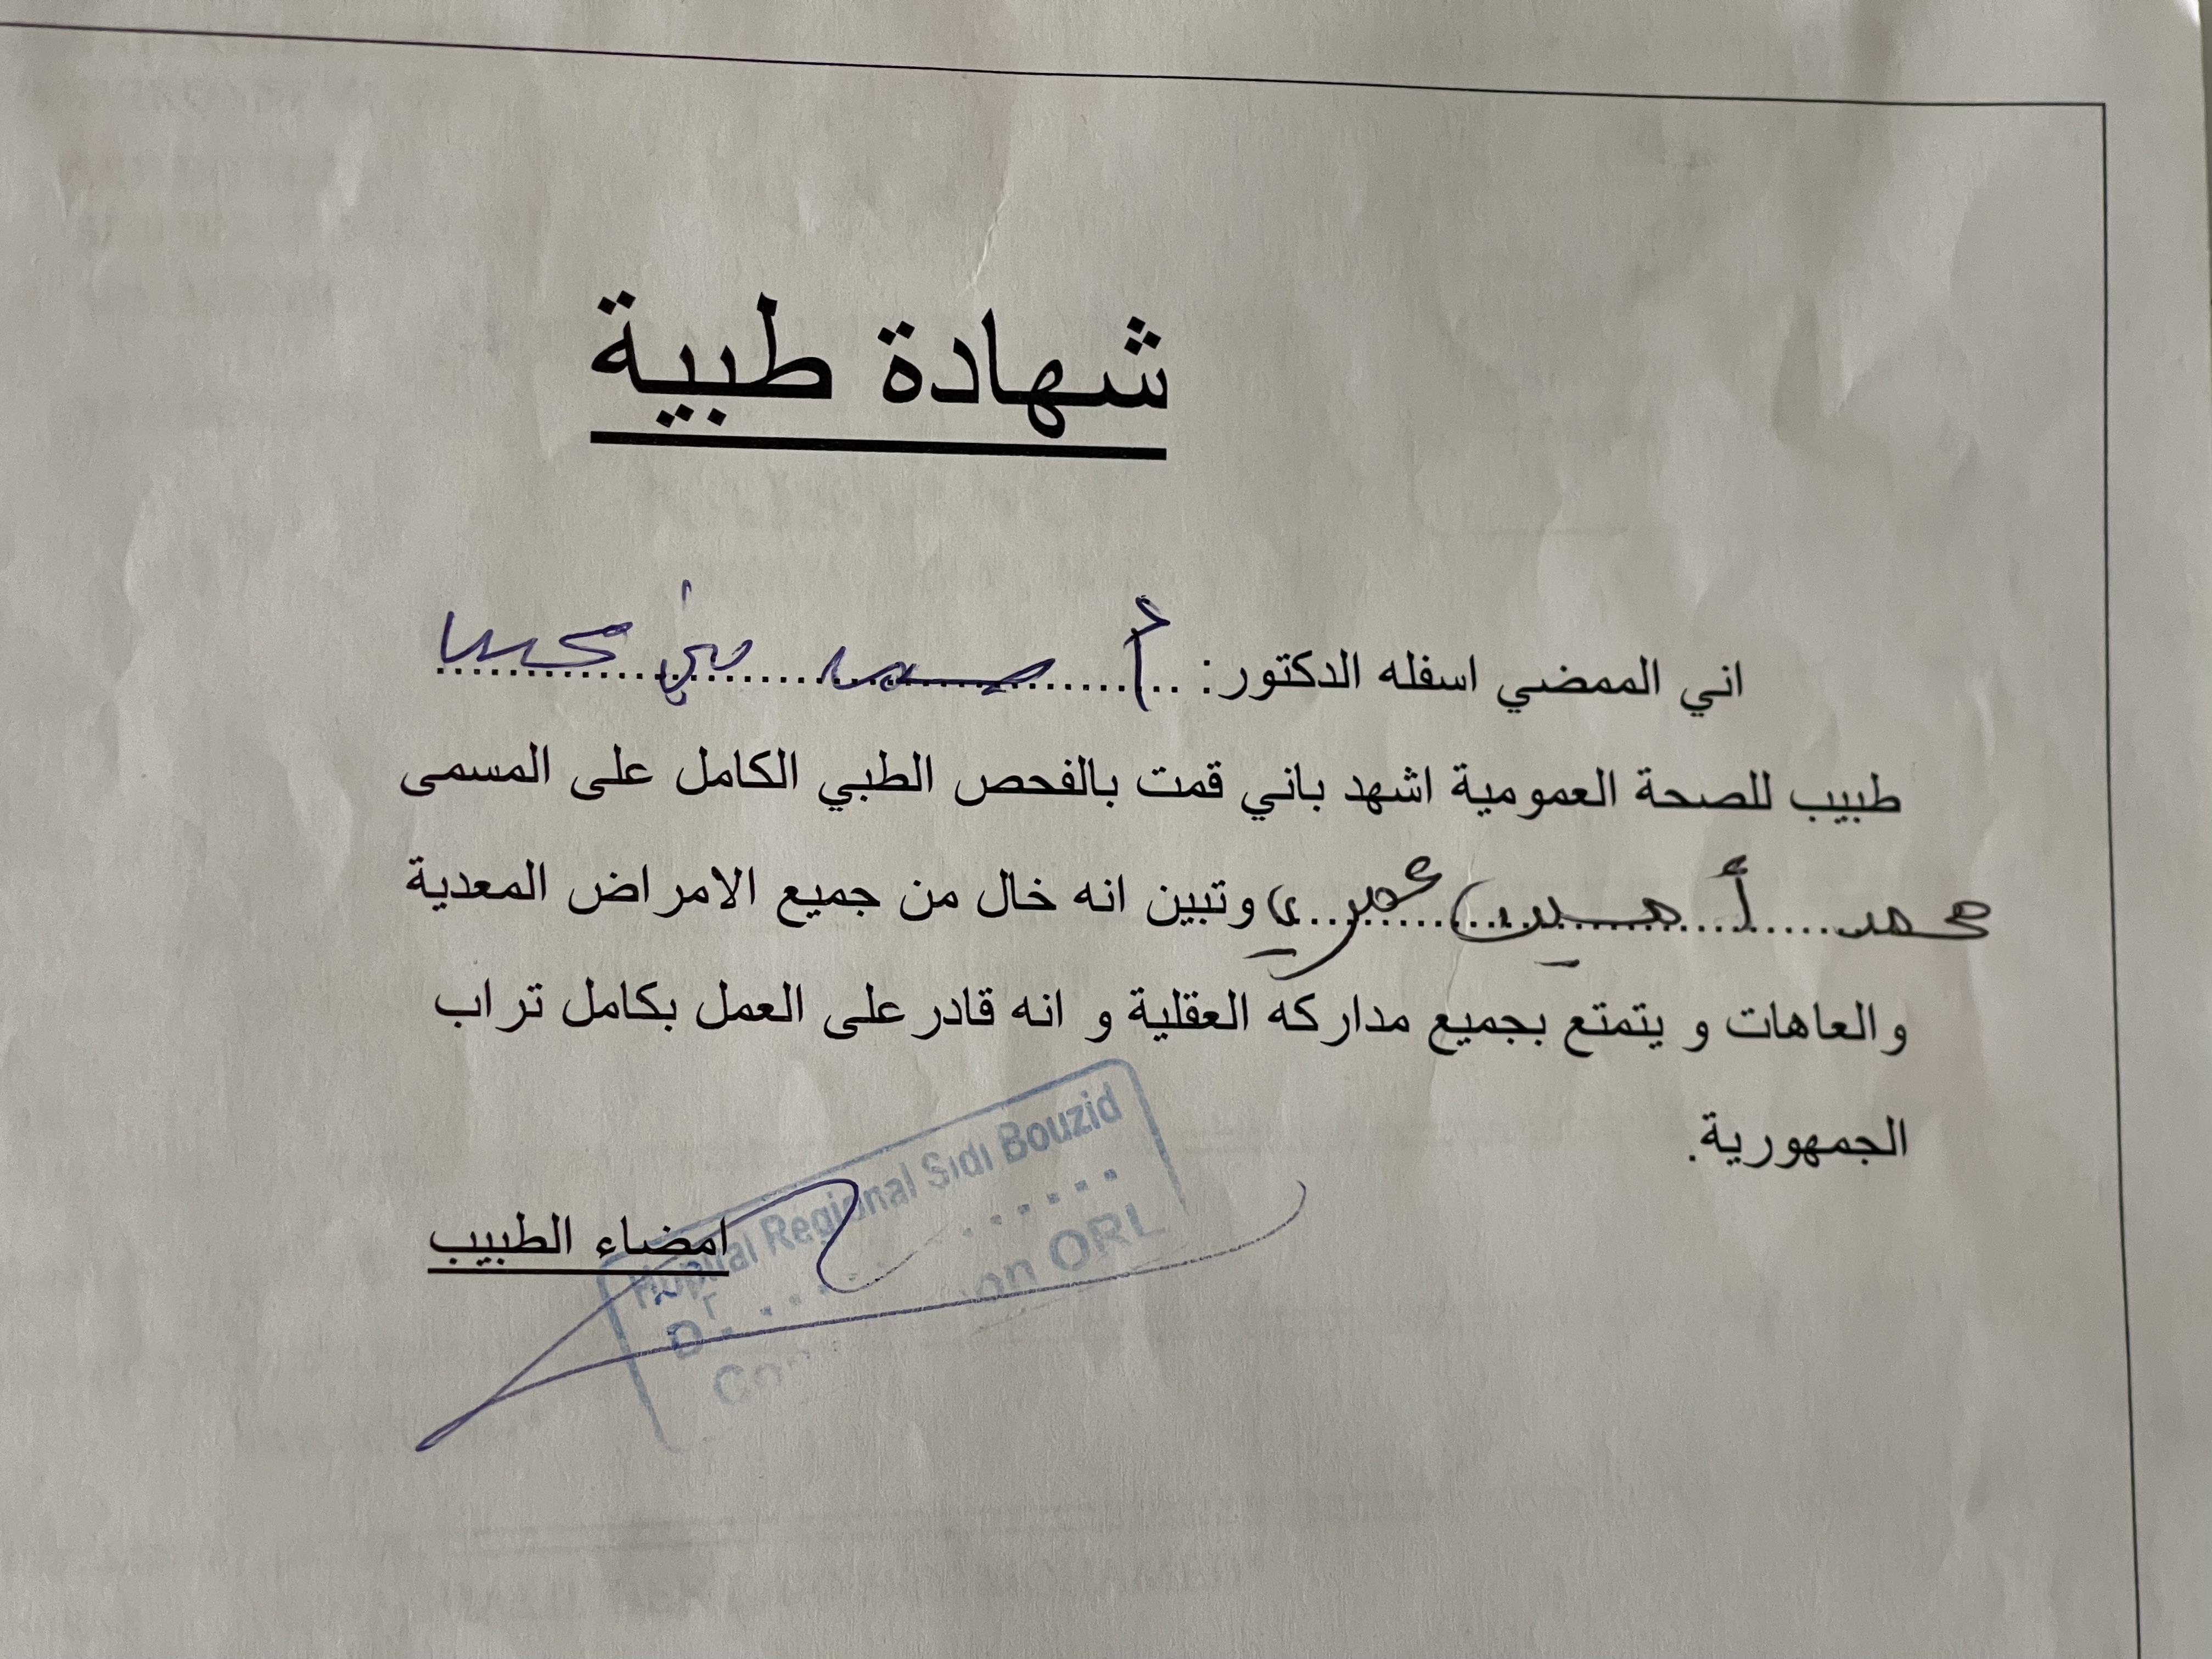 شهادة طبية
اني الممضي اسفله الدكتور:
طبيب للصحة العمومية اشهد باني قمت بالفحص الطبي الكامل على المسمى
محمد أمين عمري وتبين انه خال من جميع الامراض المعدية
والعاهات و يتمتع بجميع مداركه العقلية و انه قادر على العمل بكامل تراب
الجمهورية.
امضاء الطبيب
Hôpital Regional Sidi Bouzid
Dr
ORL